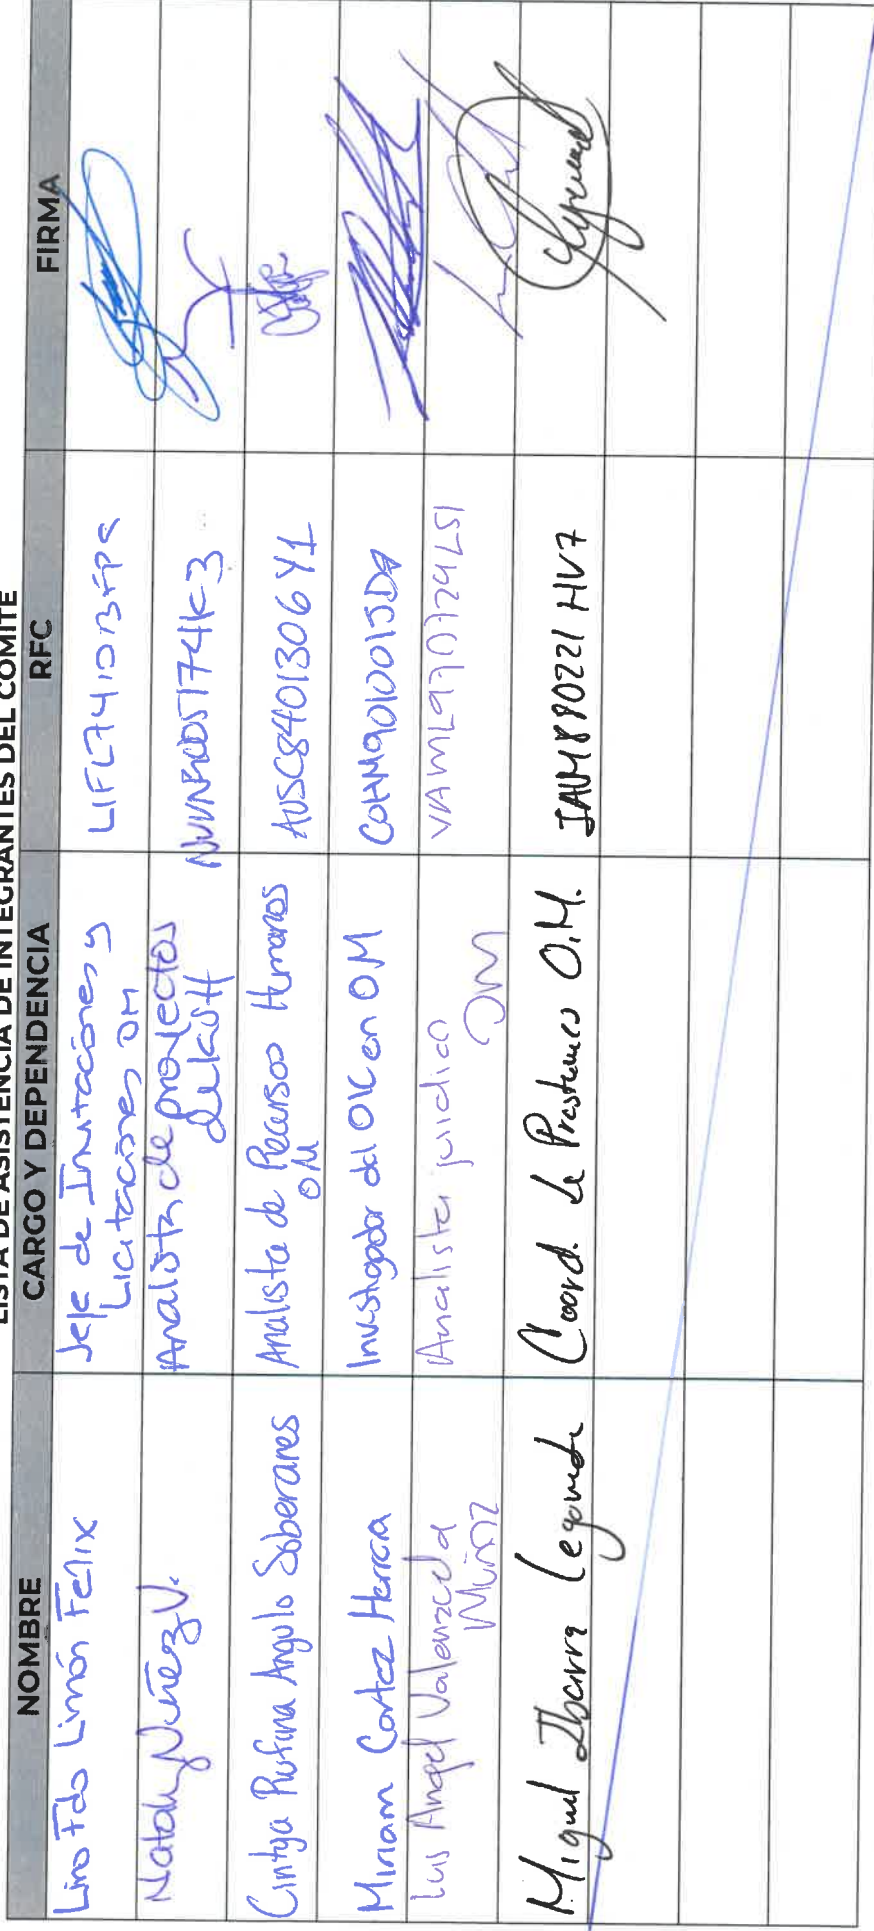 LISTA DE ASISTENCIA DE INTEGRANTES DEL COMITÉ
NOMBRE CARGO Y DEPENDENCIA RFC FIRMA
Lino Fdo Limón Felix Jefe de Invitaciones y
Licitaciones OM
Nataly Nuñez V. Analista de proyectos
Cintya Rufina Angulo Soberanes Analista de Recursos Humanos AUSC8401306Y1
OM
Miriam Cortez Herrera Investigador del OIC en OM
Luis Angel Valenzuela Analista juridico VAML970724LS1
Muñoz OM
Miguel Ibarra Legarreta Coord. de Prestamos O.M. IAUM890221HV7